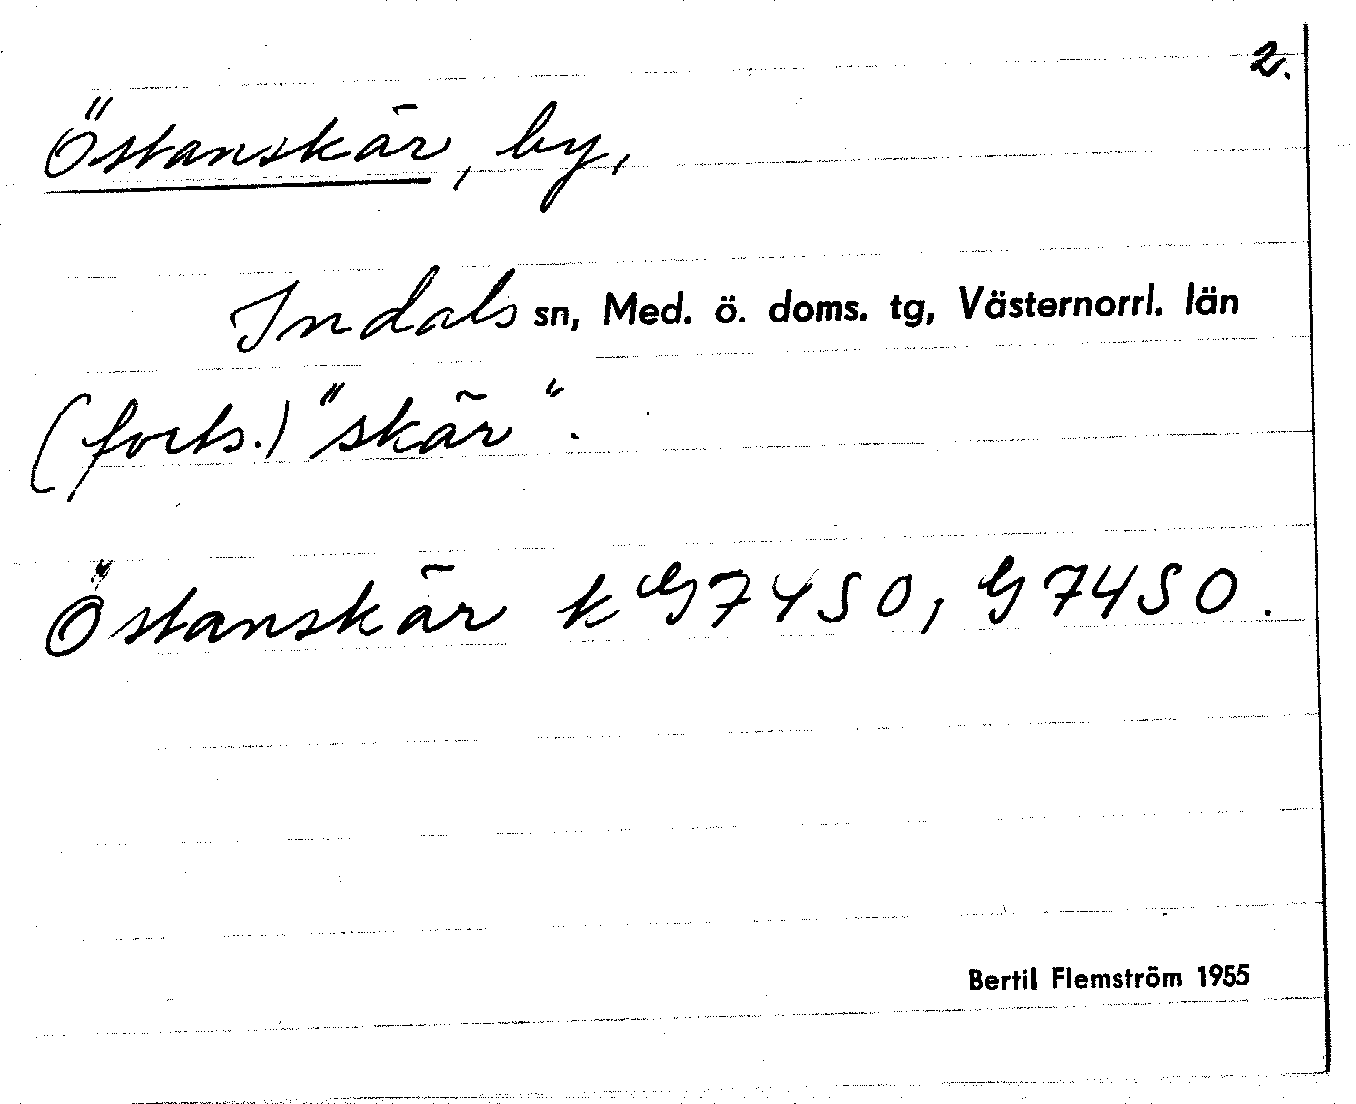 2.
Östanskär, by,
Indals sn, Med. ö. doms. tg, Västernorrl. län
(forts.) "skär".
Östanskär k G7450, G7450.
Bertil Flemström 1955